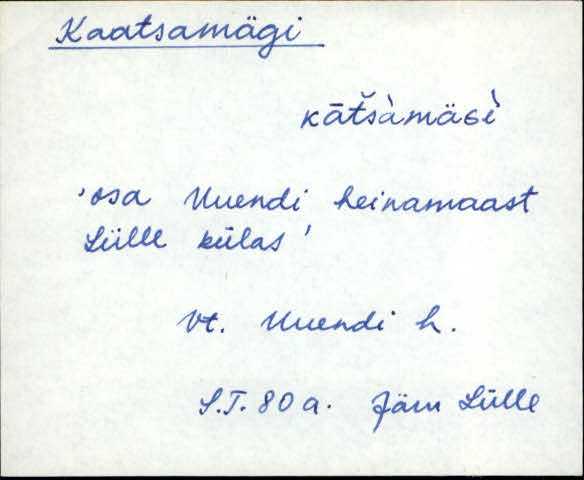 Kaatsamägi
kāt̆šàmäɢè
'osa Uuendi heinamaast
Lülle külas'
Vt. Uuendi h.
S.T. 80 a. Jäm Lülle